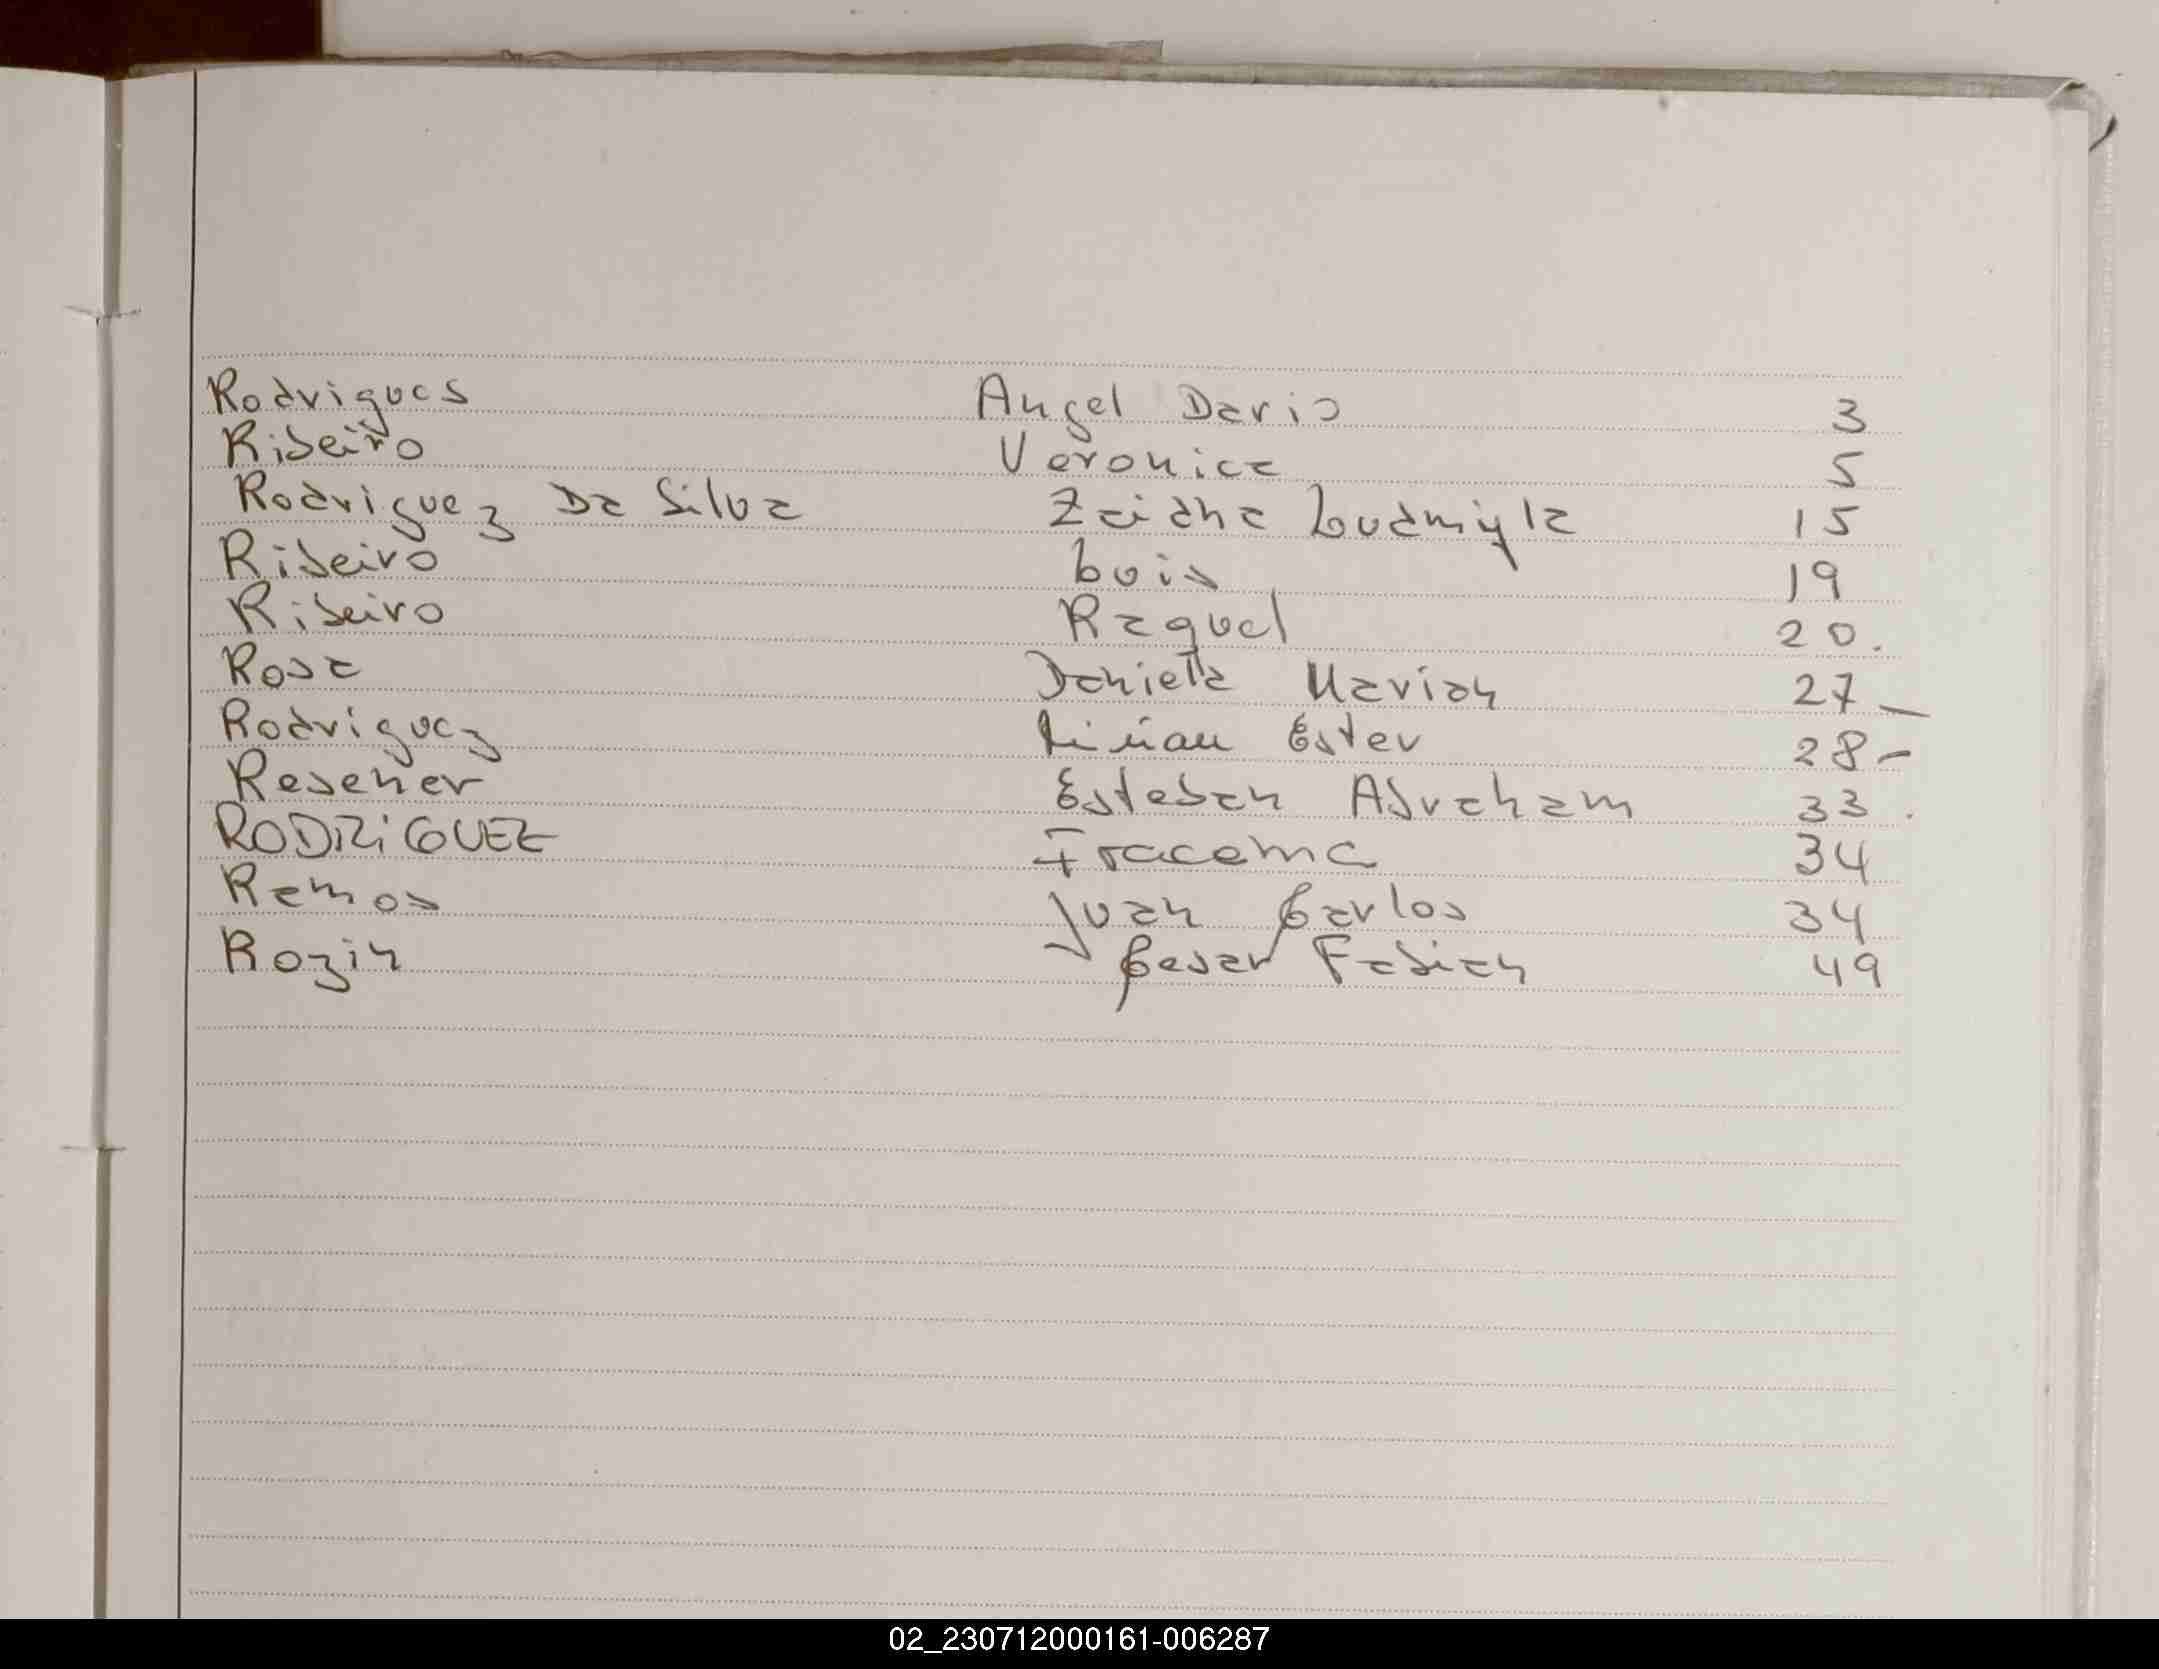 Rodrigues Angel Dario 3
Ribeiro Veronica 5
Rodriguez Da Silva Zaidha Ludmyla 15
Ribeiro Luis 19
Ribeiro Raquel 20.
Rosa Daniella Marian 27 -
Rodriguez Ester 28 -
Resener Esteban Abraham 33.
RODRiGUEZ Iracema 34
Ramos Juan Carlos 34
Rozin Cesar Fabian 49
02_230712000161-006287